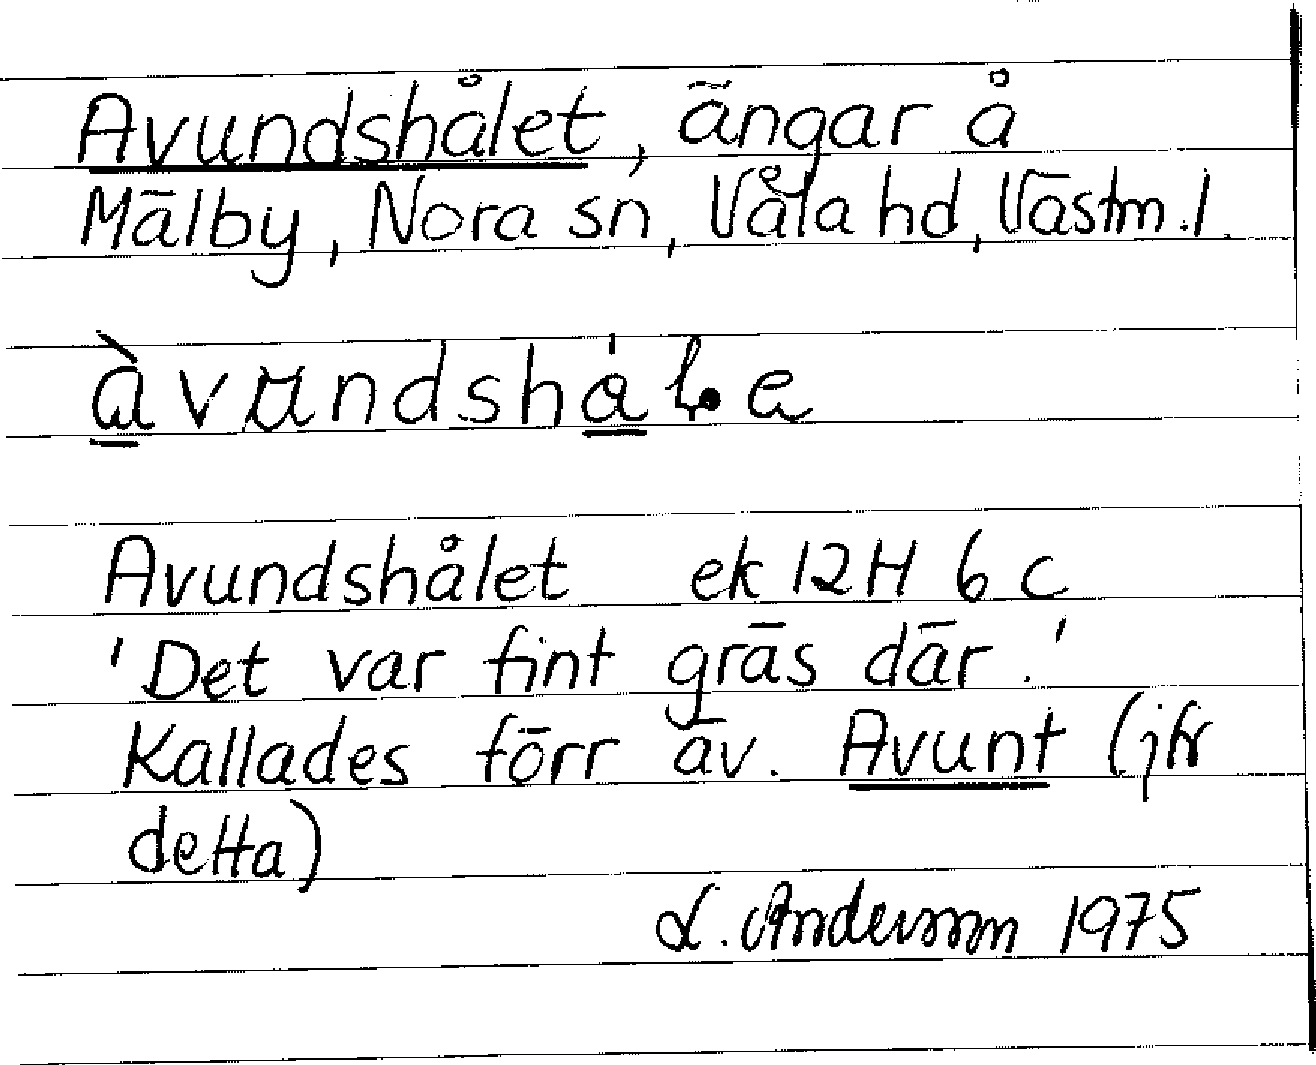 Avundshålet, ängar å
Mälby, Nora sn, Våla hd, Västm.l.
Avundshålet ek 12H 6c
'Det var fint gräs där.'
Kallades förr äv. Avunt (jfr
detta)
L. Andersson 1975